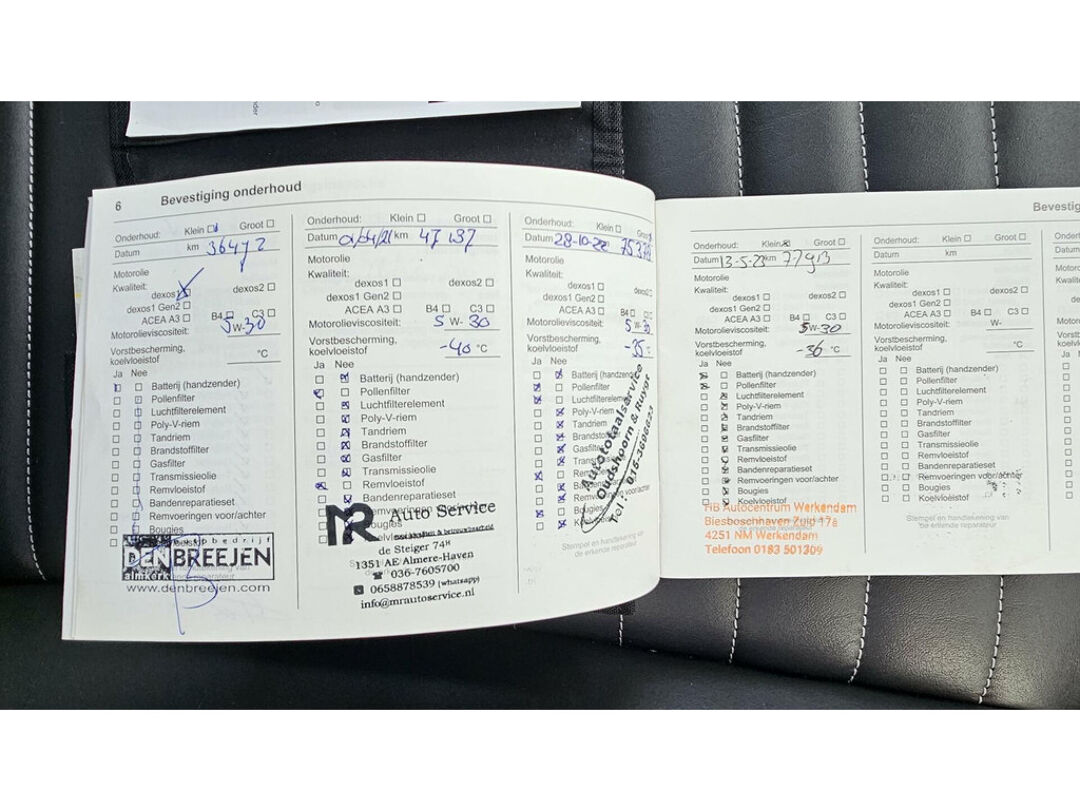 6 Bevestiging onderhoud
Onderhoud: Klein Groot
Datum km 36472
Motorolie
Kwaliteit:
dexos1 dexos2
dexos1 Gen2
ACEA A3 B4 C3
Motorolieviscositeit: 5W-30
Vorstbescherming,
koelvloeistof °C
Ja Nee
Batterij (handzender)
Pollenfilter
Luchtfilterelement
Poly-V-riem
Tandriem
Brandstoffilter
Gasfilter
Transmissieolie
Remvloeistof
Bandenreparatieset
Remvoeringen voor/achter
Bougies
DENBREEJEN
www.denbreejen.com
Onderhoud: Klein Groot
Datum 01/04/21 km 47137
Motorolie
Kwaliteit:
dexos1 dexos2
dexos1 Gen2
ACEA A3 B4 C3
Motorolieviscositeit: 5 W- 30
Vorstbescherming,
koelvloeistof -40 °C
Ja Nee
Batterij (handzender)
Pollenfilter
Luchtfilterelement
Poly-V-riem
Tandriem
Brandstoffilter
Gasfilter
Transmissieolie
Remvloeistof
Bandenreparatieset
MR Auto Service
de Steiger 74
1351 AE Almere-Haven
036-7605700
0658878539 (whatsapp)
info@mrautoservice.nl
Onderhoud: Klein
Datum 28-10-22
Motorolie
Kwaliteit:
dexos1
dexos1 Gen2
ACEA A3 B4
Motorolieviscositeit: 5 W-
Vorstbescherming,
koelvloeistof -35
Ja Nee
Batterij (handzender)
Pollenfilter
Luchtfilterelement
Poly-V-riem
Tandriem
Autototaalservice
Oudshoorn & Ruygt
Stempel en handtekening van
de erkende reparateur
Bevestig
Onderhoud: Klein Groot
Datum 13-5-23 km 77913
Motorolie
Kwaliteit:
dexos1 dexos2
dexos1 Gen2
ACEA A3 B4 C3
Motorolieviscositeit: 5W-30
Vorstbescherming,
koelvloeistof -36 °C
Ja Nee
Batterij (handzender)
Pollenfilter
Luchtfilterelement
Poly-V-riem
Tandriem
Brandstoffilter
Gasfilter
Transmissieolie
Remvloeistof
Bandenreparatieset
Remvoeringen voor/achter
Bougies
Koelvloeistof
HB Autocentrum Werkendam
Biesboschhaven Zuid 17a
4251 NM Werkendam
Telefoon 0183 501309
Onderhoud: Klein Groot
Datum km
Motorolie
Kwaliteit:
dexos1 dexos2
dexos1 Gen2
ACEA A3 B4 C3
Motorolieviscositeit: W-
Vorstbescherming,
koelvloeistof °C
Ja Nee
Batterij (handzender)
Pollenfilter
Luchtfilterelement
Poly-V-riem
Tandriem
Brandstoffilter
Gasfilter
Transmissieolie
Remvloeistof
Bandenreparatieset
Remvoeringen voor/achter
Bougies
Koelvloeistof
Stempel en handtekening van
de erkende reparateur